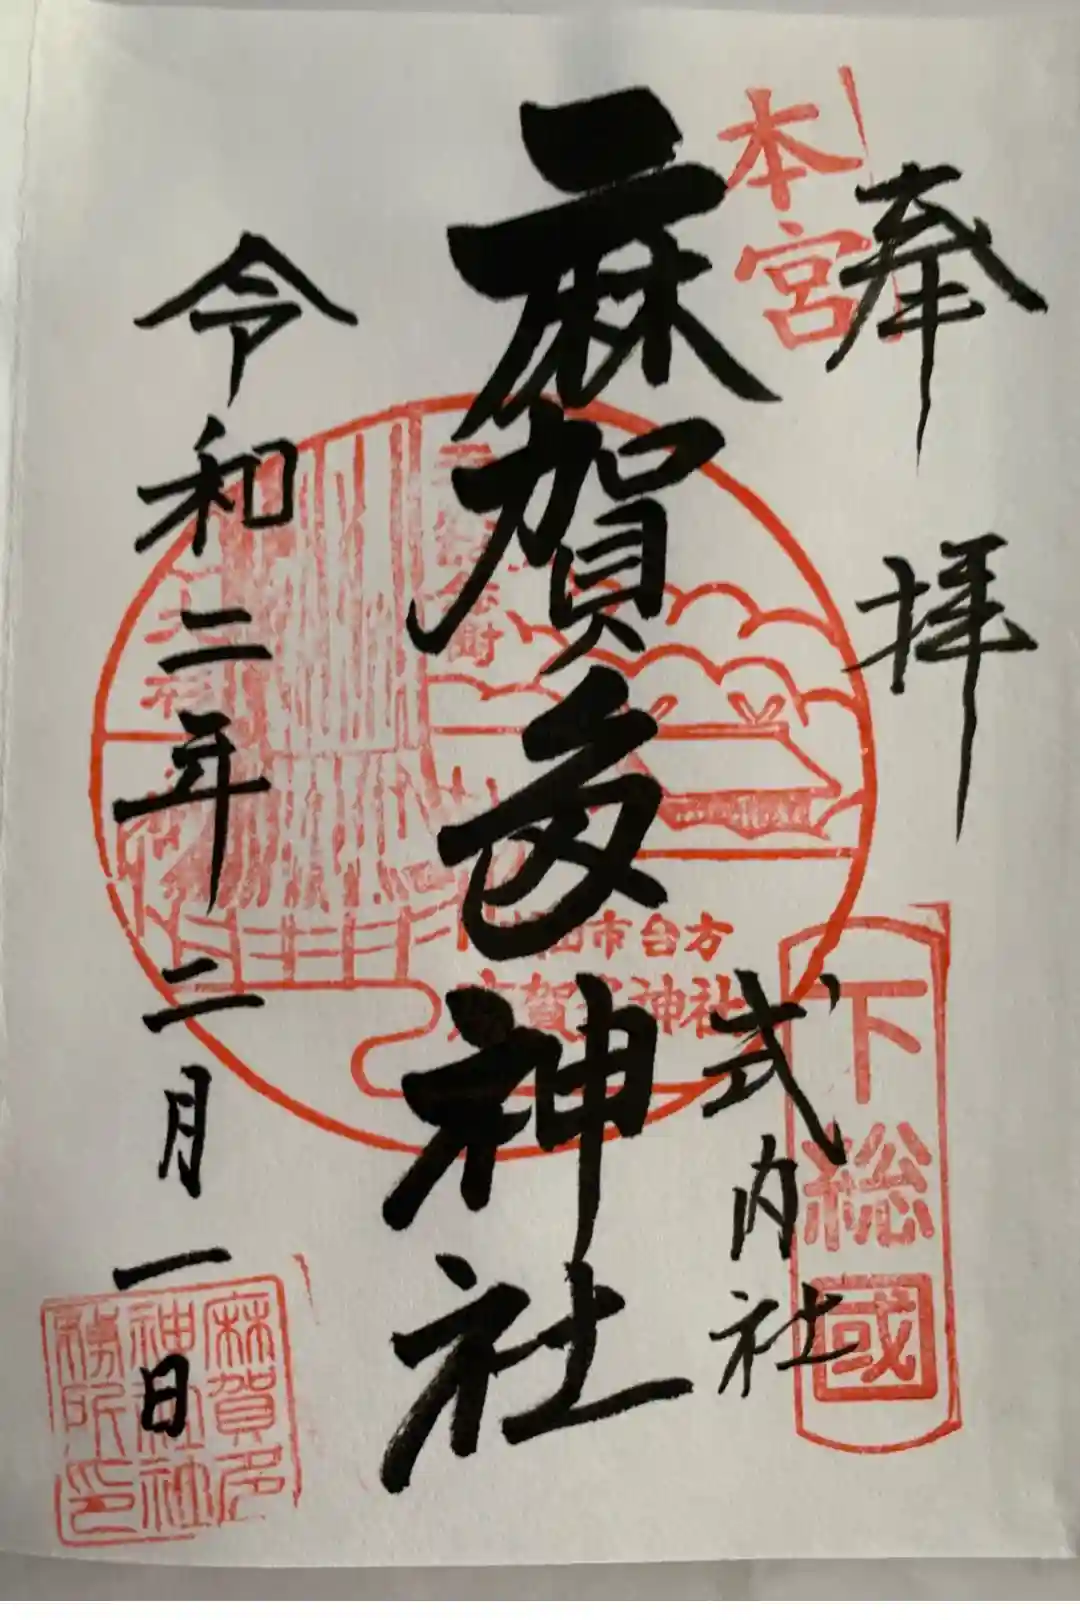 奉拝
本宮
下総國
式内社
麻賀多神社
成田市台方
麻賀多神社
令和二年二月一日
麻賀多
神社社
務所印